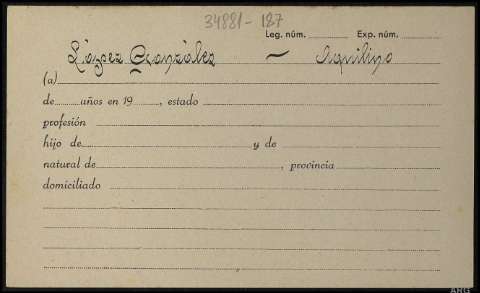 34881-187
Leg. núm. Exp. núm.
López González - Aquilino
(a)
de años en 19 , estado
profesión
hijo de y de
natural de , provincia
domiciliado
ARG